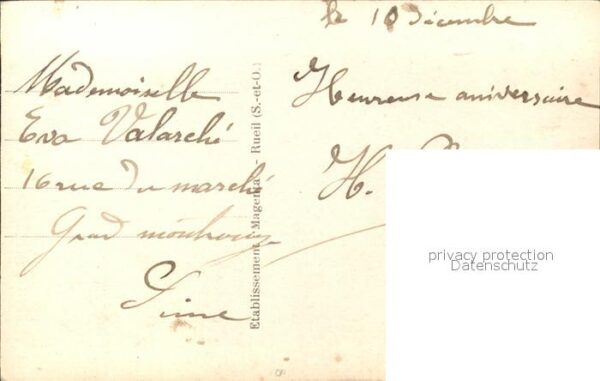 le 10 décembre
Mademoiselle
Eva Valarché
16 rue du marché
Grand montrouge
Seine
Etablissement "Magenta" Rueil (S.-et-O.)
Heureuse aniversaire
H.
privacy protection
Datenschutz